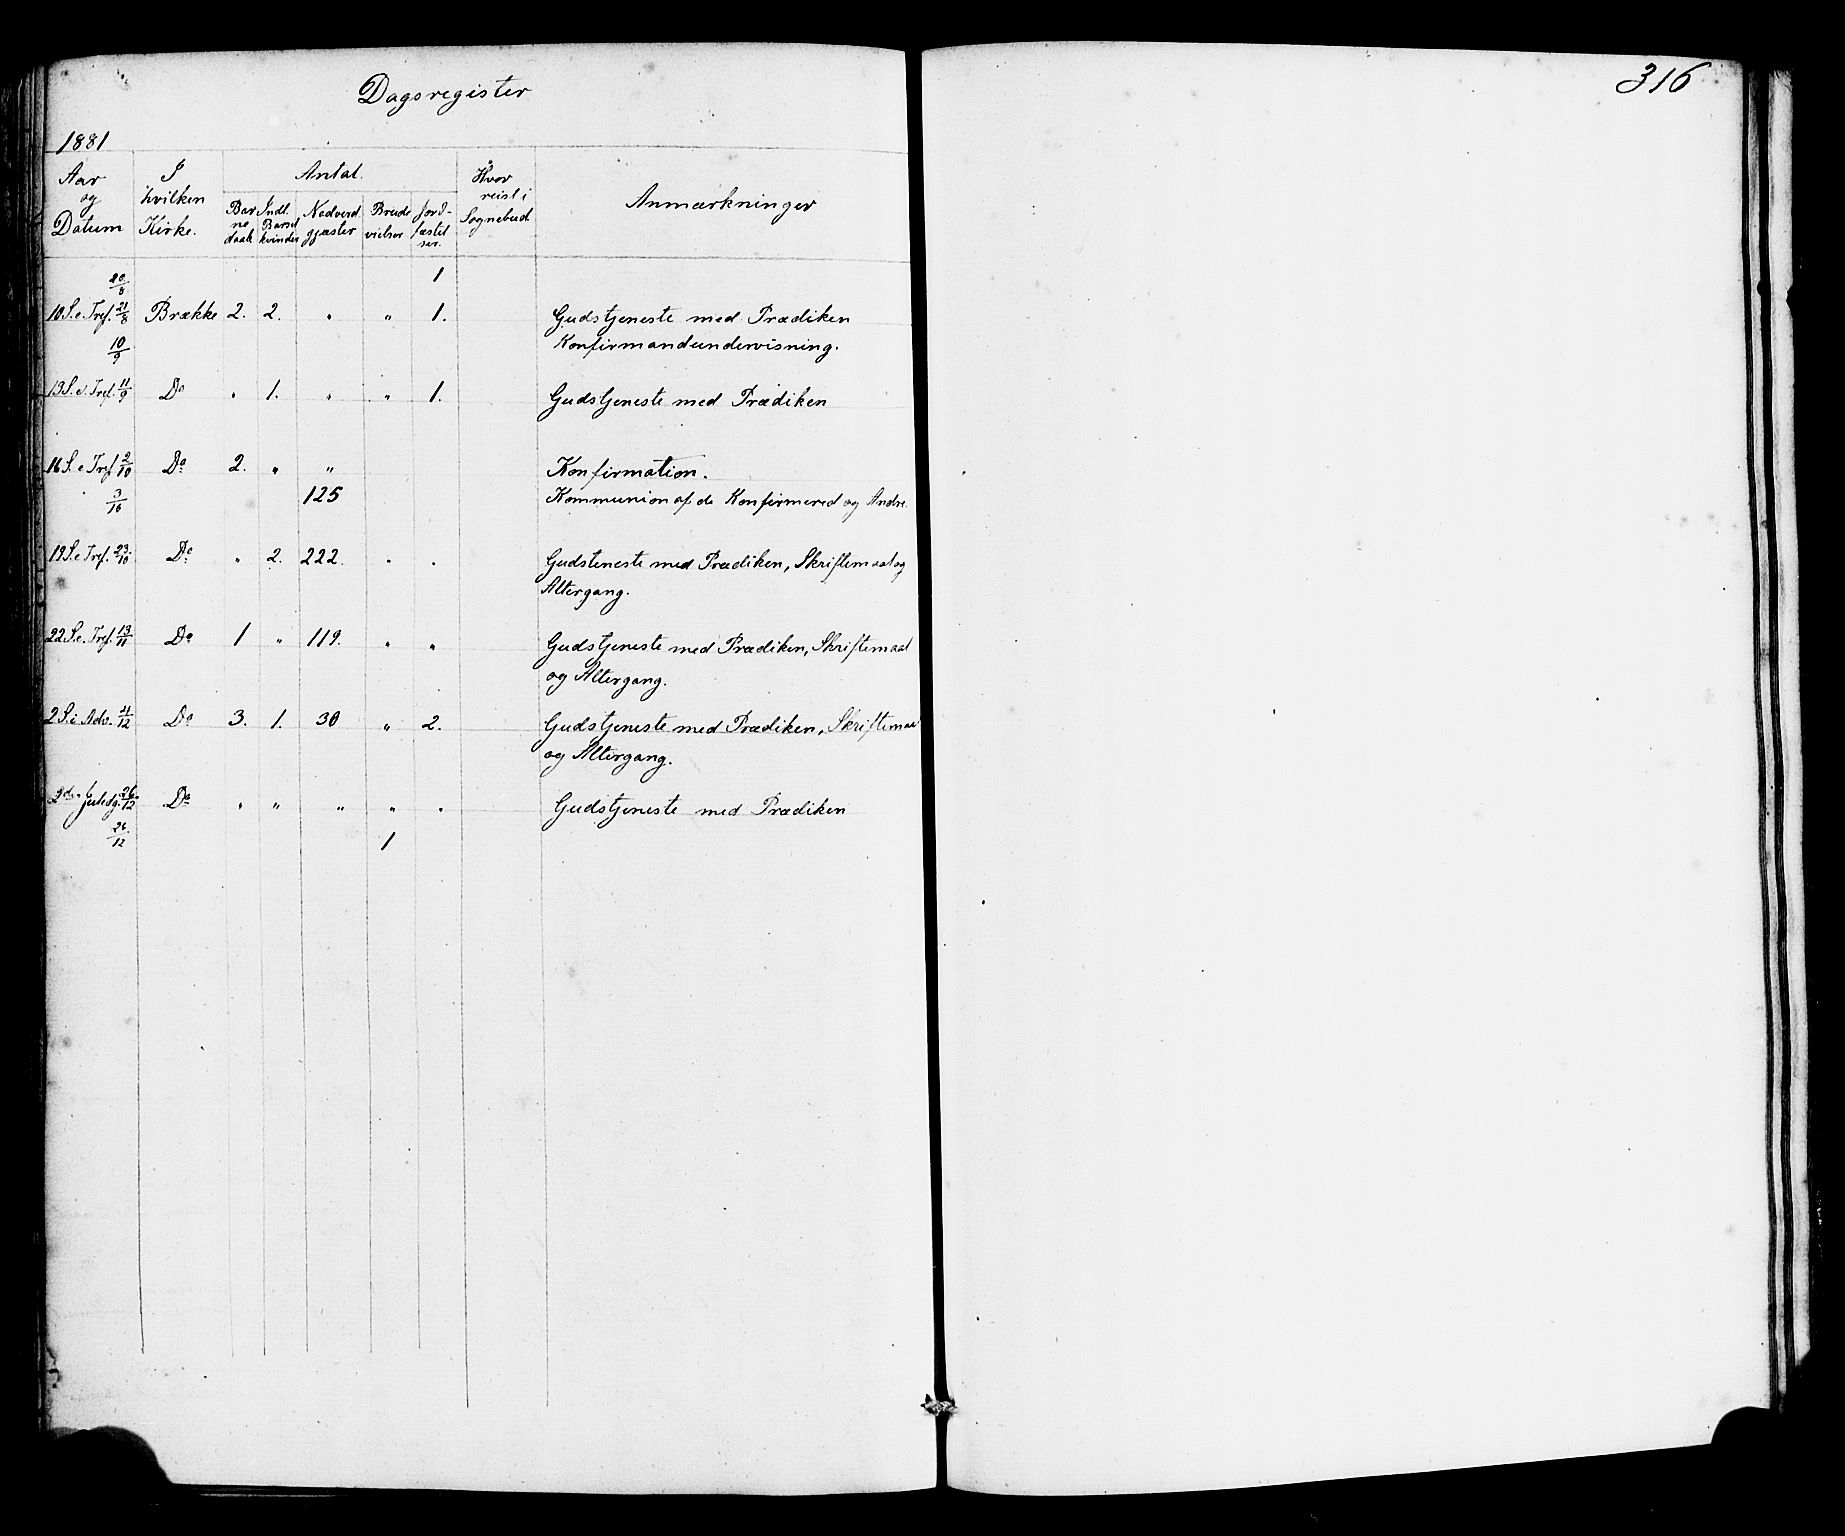 Dagsregister
316
1881
Aar og Datum | I hvilken Kirke. | Antal. | Hvor reist i Sognebud | Anmærkninger
Barnedaab | Indl. Barselkvinder | Nadverdgjæster | Brudevielser | Jordfæstelser.
20/8 1
10 S. e. Tref. 21/8 Brække 2. 2. " " 1. Gudstjeneste med Prædiken
10/9 Konfirmandundervisning.
13 S. e. Tref. 11/9 Do " 1. " " 1. Gudstjeneste med Prædiken
16 S. e Tref 2/10 Do 2. " " Konfirmation.
3/10 125 Kommunion af de Konfirmered og Andre.
19 S. e Tref. 23/10 Do " 2. 222. " " Gudsteneste med Prædiken, Skriftemaal og
Altergang.
22 S. e. Tref. 13/11 Do 1 " 119. " " Gudstjeneste med Prædiken, Skriftemaal
og Altergang.
2 S. i Adv. 11/12 Do 3. 1. 30 " 2. Gudstjeneste med Prædiken, Skriftemaa
og Altergang.
2den Juledg. 26/12 Do " " " " " Gudstjeneste med Prædiken
26/12 1